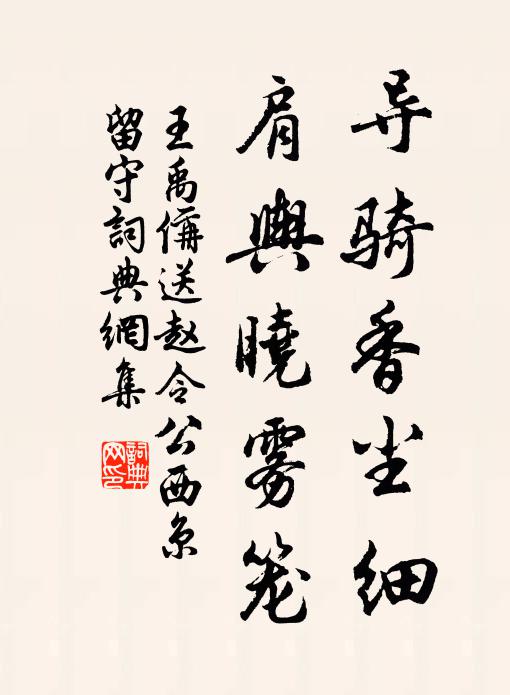 导骑香尘细
肩舆晓雾笼
王禹偁送赵令公西京
留守詞典網集
詞典网印